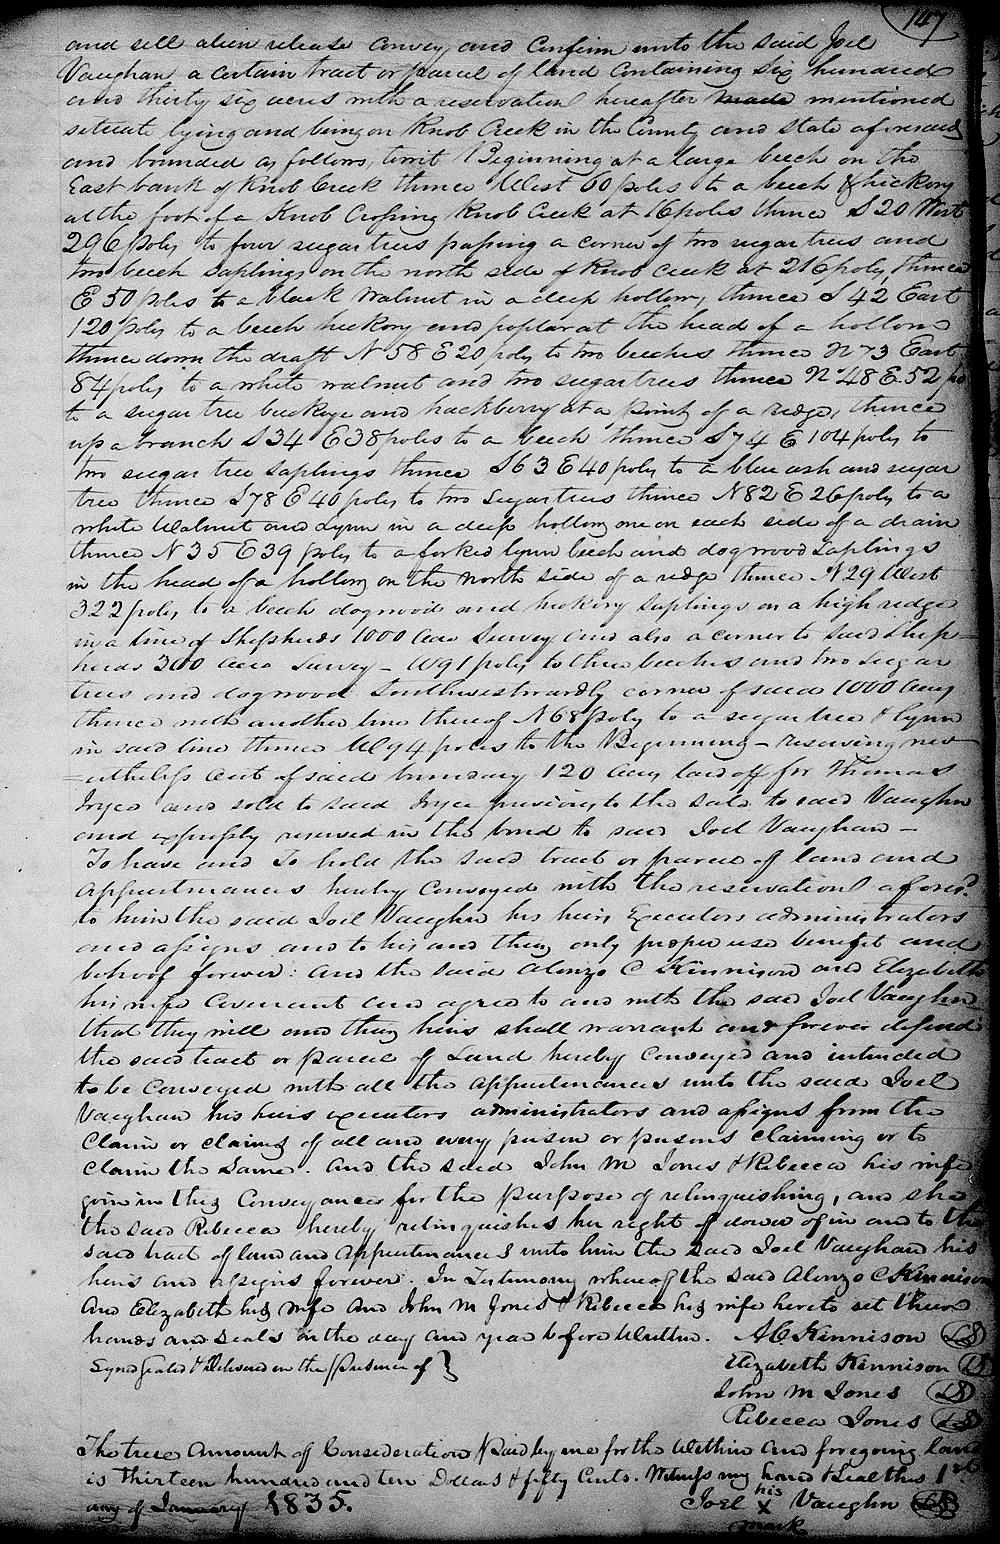 147
and sell alien release convey and confirm unto the said Joel
Vaughan a certain tract or parcel of land containing six hundred
and thirty six acres with a reservation hereafter made mentioned
setuate lying and being on Knob Creek in the County and State aforesaid
and bounded as follows, towit Beginning at a large beech on the
East bank of Knob Creek thence West 60 poles to a beech & hickory
at the foot of a Knob Crossing Knob Creek at 16 poles thence S 20 West
296 poles to four sugartrees passing a corner of two sugar trees and
two beech saplings on the north side of Knob Creek at 216 poles, thence
E 50 poles to a black walnut in a deep hollow, thence S 42 East
120 poles to a beech hickory and poplar at the head of a hollow
thence down the draft N 58 E 20 poles to two beeches thence N 73 East
84 poles to a white walnut and two sugartrees thence N 48 E. 52 po
to a sugar tree buckeye and hackberry at a point of a ridge, thence
up a branch S 34 E 38 poles to a beech thence S 74 E 104 poles to
two sugar tree saplings thence S 63 E 40 poles to a blue ash and sugar
tree thence S 78 E 40 poles to two sugartrees thence N 82 E 26 poles to a
white Walnut and Lynn in a deep hollow one on each side of a drain
thence N 35 E 39 poles to a forked lynn beech and dogwood saplings
in the head of a hollow on the north side of a ridge thence N 29 West
322 poles to a beech dogwood and hickory saplings on a high ridge
in a line of Shepherds 1000 acre Survey and also a corner to said Shep=
herds 300 acre survey - W 91 poles to three beeches and two sugar
trees and dogwood Southwestwardly corner of said 1000 acres
thence with another line thereof N 68 poles to a sugar tree & lynn
in said line thence W 94 poles to the Beginning - reserving nev
=ertheless out of said boundary 120 acres laid off for Thomas
Joyce and sold to said Joyce previous to the sale to said Vaughn
and expressly reserved in the bond to said Joel Vaughan -
To have and To hold the said tract or parcel of land and
appurtenances hereby conveyed with the reservation aforesd.
to him the said Joel Vaughn his heirs Executors administrators
and assigns and to his and their only proper use benefit and
behoof forever: And the said Alonzo C Kinnison and Elizabeth
his wife Covenant and agree to and with the said Joel Vaughn
that they will and their heirs shall warrant and forever defend
the said tract or parcel of Land hereby conveyed and intended
to be conveyed with all the appurtenances unto the said Joel
Vaughan his heirs executors administrators and assigns from the
Claim or claims of all and every person or persons claiming or to
Claim the Same. And the said John M Jones & Rebecca his wife
join in this Conveyance for the purpose of relinquishing, and she
the said Rebecca hereby relinquishes her right of dower of in and to the
said tract of land and Appurtenances unto him the said Joel Vaughan his
heirs and assigns forever. In Testimony whereof the said Alonzo C Kinnison
and Elizabeth his wife and John M Jones & Rebecca his wife hereto set their
hands and seals on the day and year before Written. A C Kinnison LS
Signd Sealed & Delivered in the presence of } Elizabeth Kinnison LS
John M Jones LS
Rebecca Jones LS
The true Amount of Consideration Paid by me for the Within and foregoing land
is thirteen hundred and ten Dollars & fifty Cents. Witness my hand & Seal this 1st
day of January 1835. Joel his X mark Vaughn LS